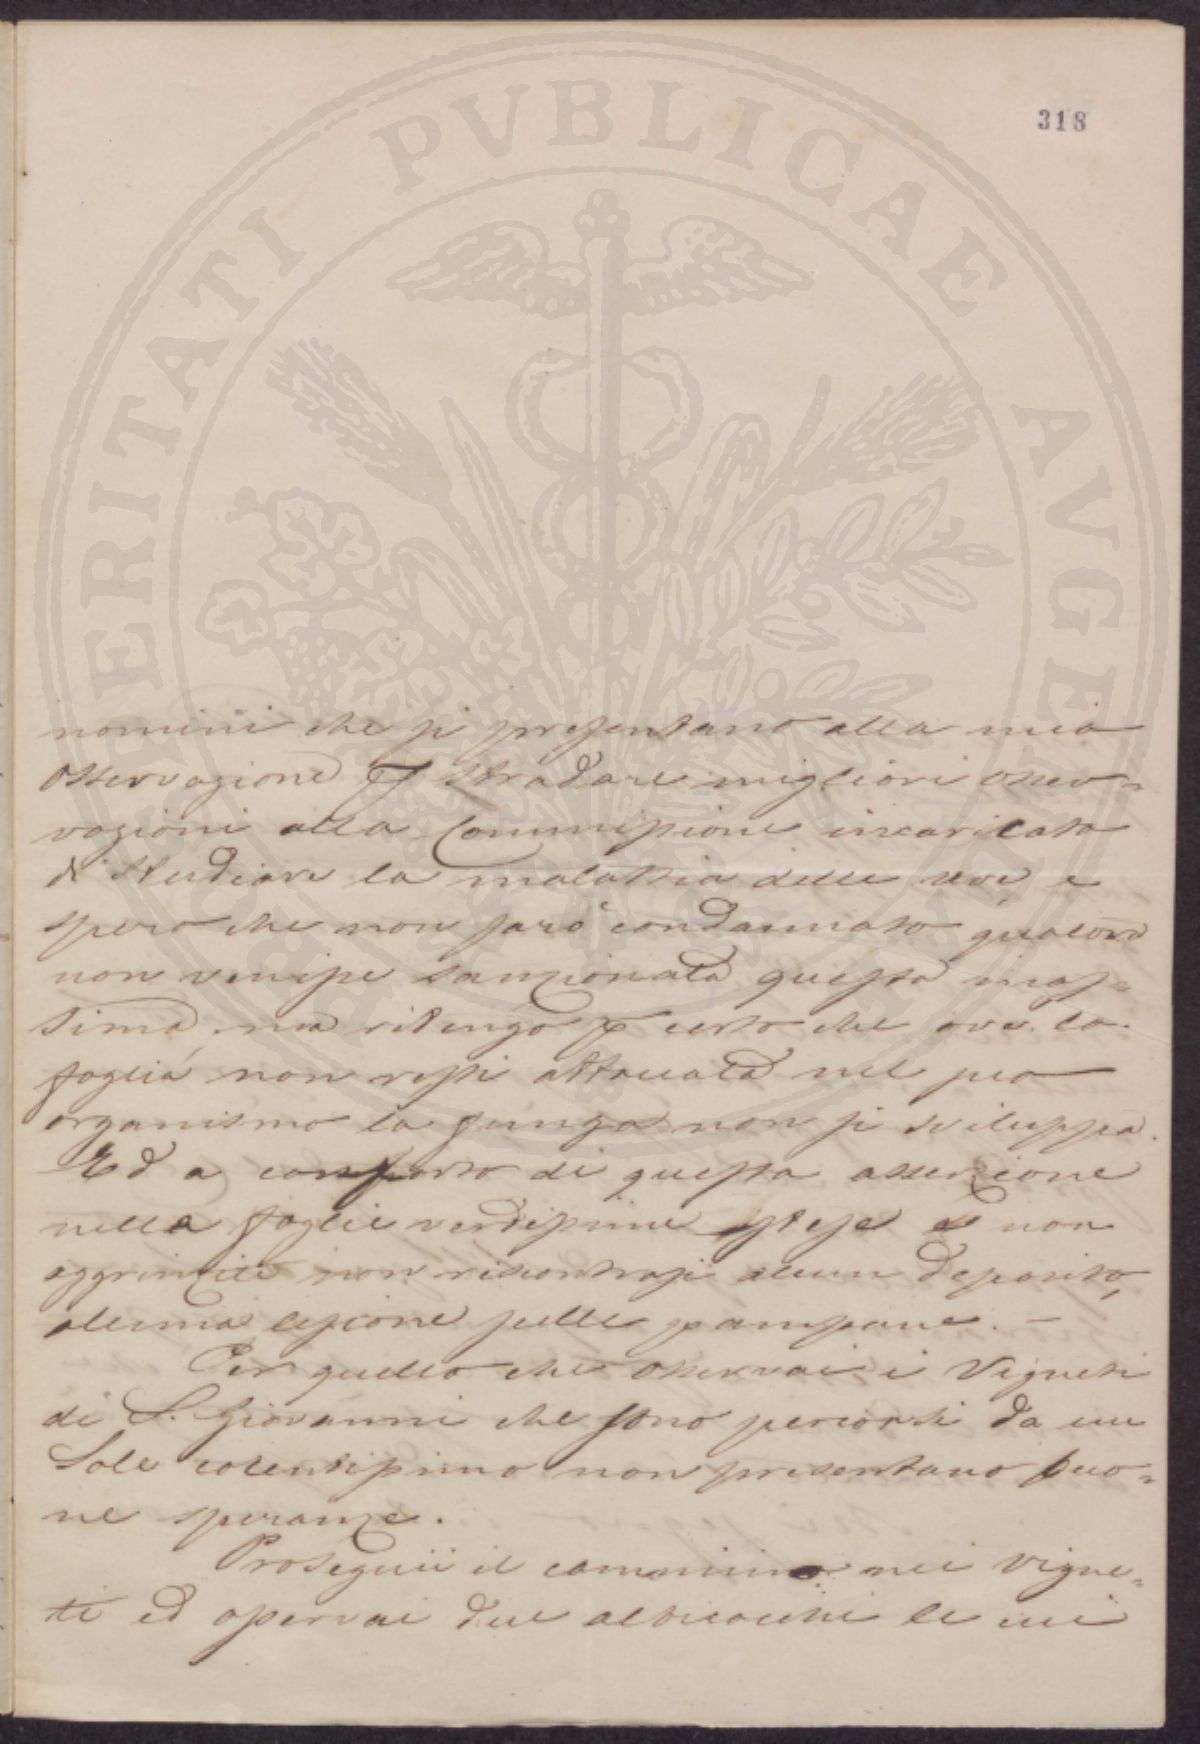 318
PROSPERITATI PVBLICAE AVGENDAE
nomini che si presentano alla mia
osservazione p stradare migliori osser-
vazioni alla Commissione incaricata
di studiare la malattia delle uve, e
spero che non sarò condannato qualora
non venisse sanzionata questa mas-
sima, ma ritengo p certo che ove la
foglia non resti attaccata nel suo
organismo la funga non si sviluppa.
Ed a conforto di questa asserzione
nella foglie verdissime estese e non
aggrinzite non riscontrasi alcun deposito,
alcuna lesione sulle pampane. -
Per quello che osservai i Vigneti
di S. Giovanni che sono percorsi da un
Sole cocentissimo non presentano buo-
ne speranze.
Proseguii il cammino nei vigne-
ti ed osservai due albicocchi le cui